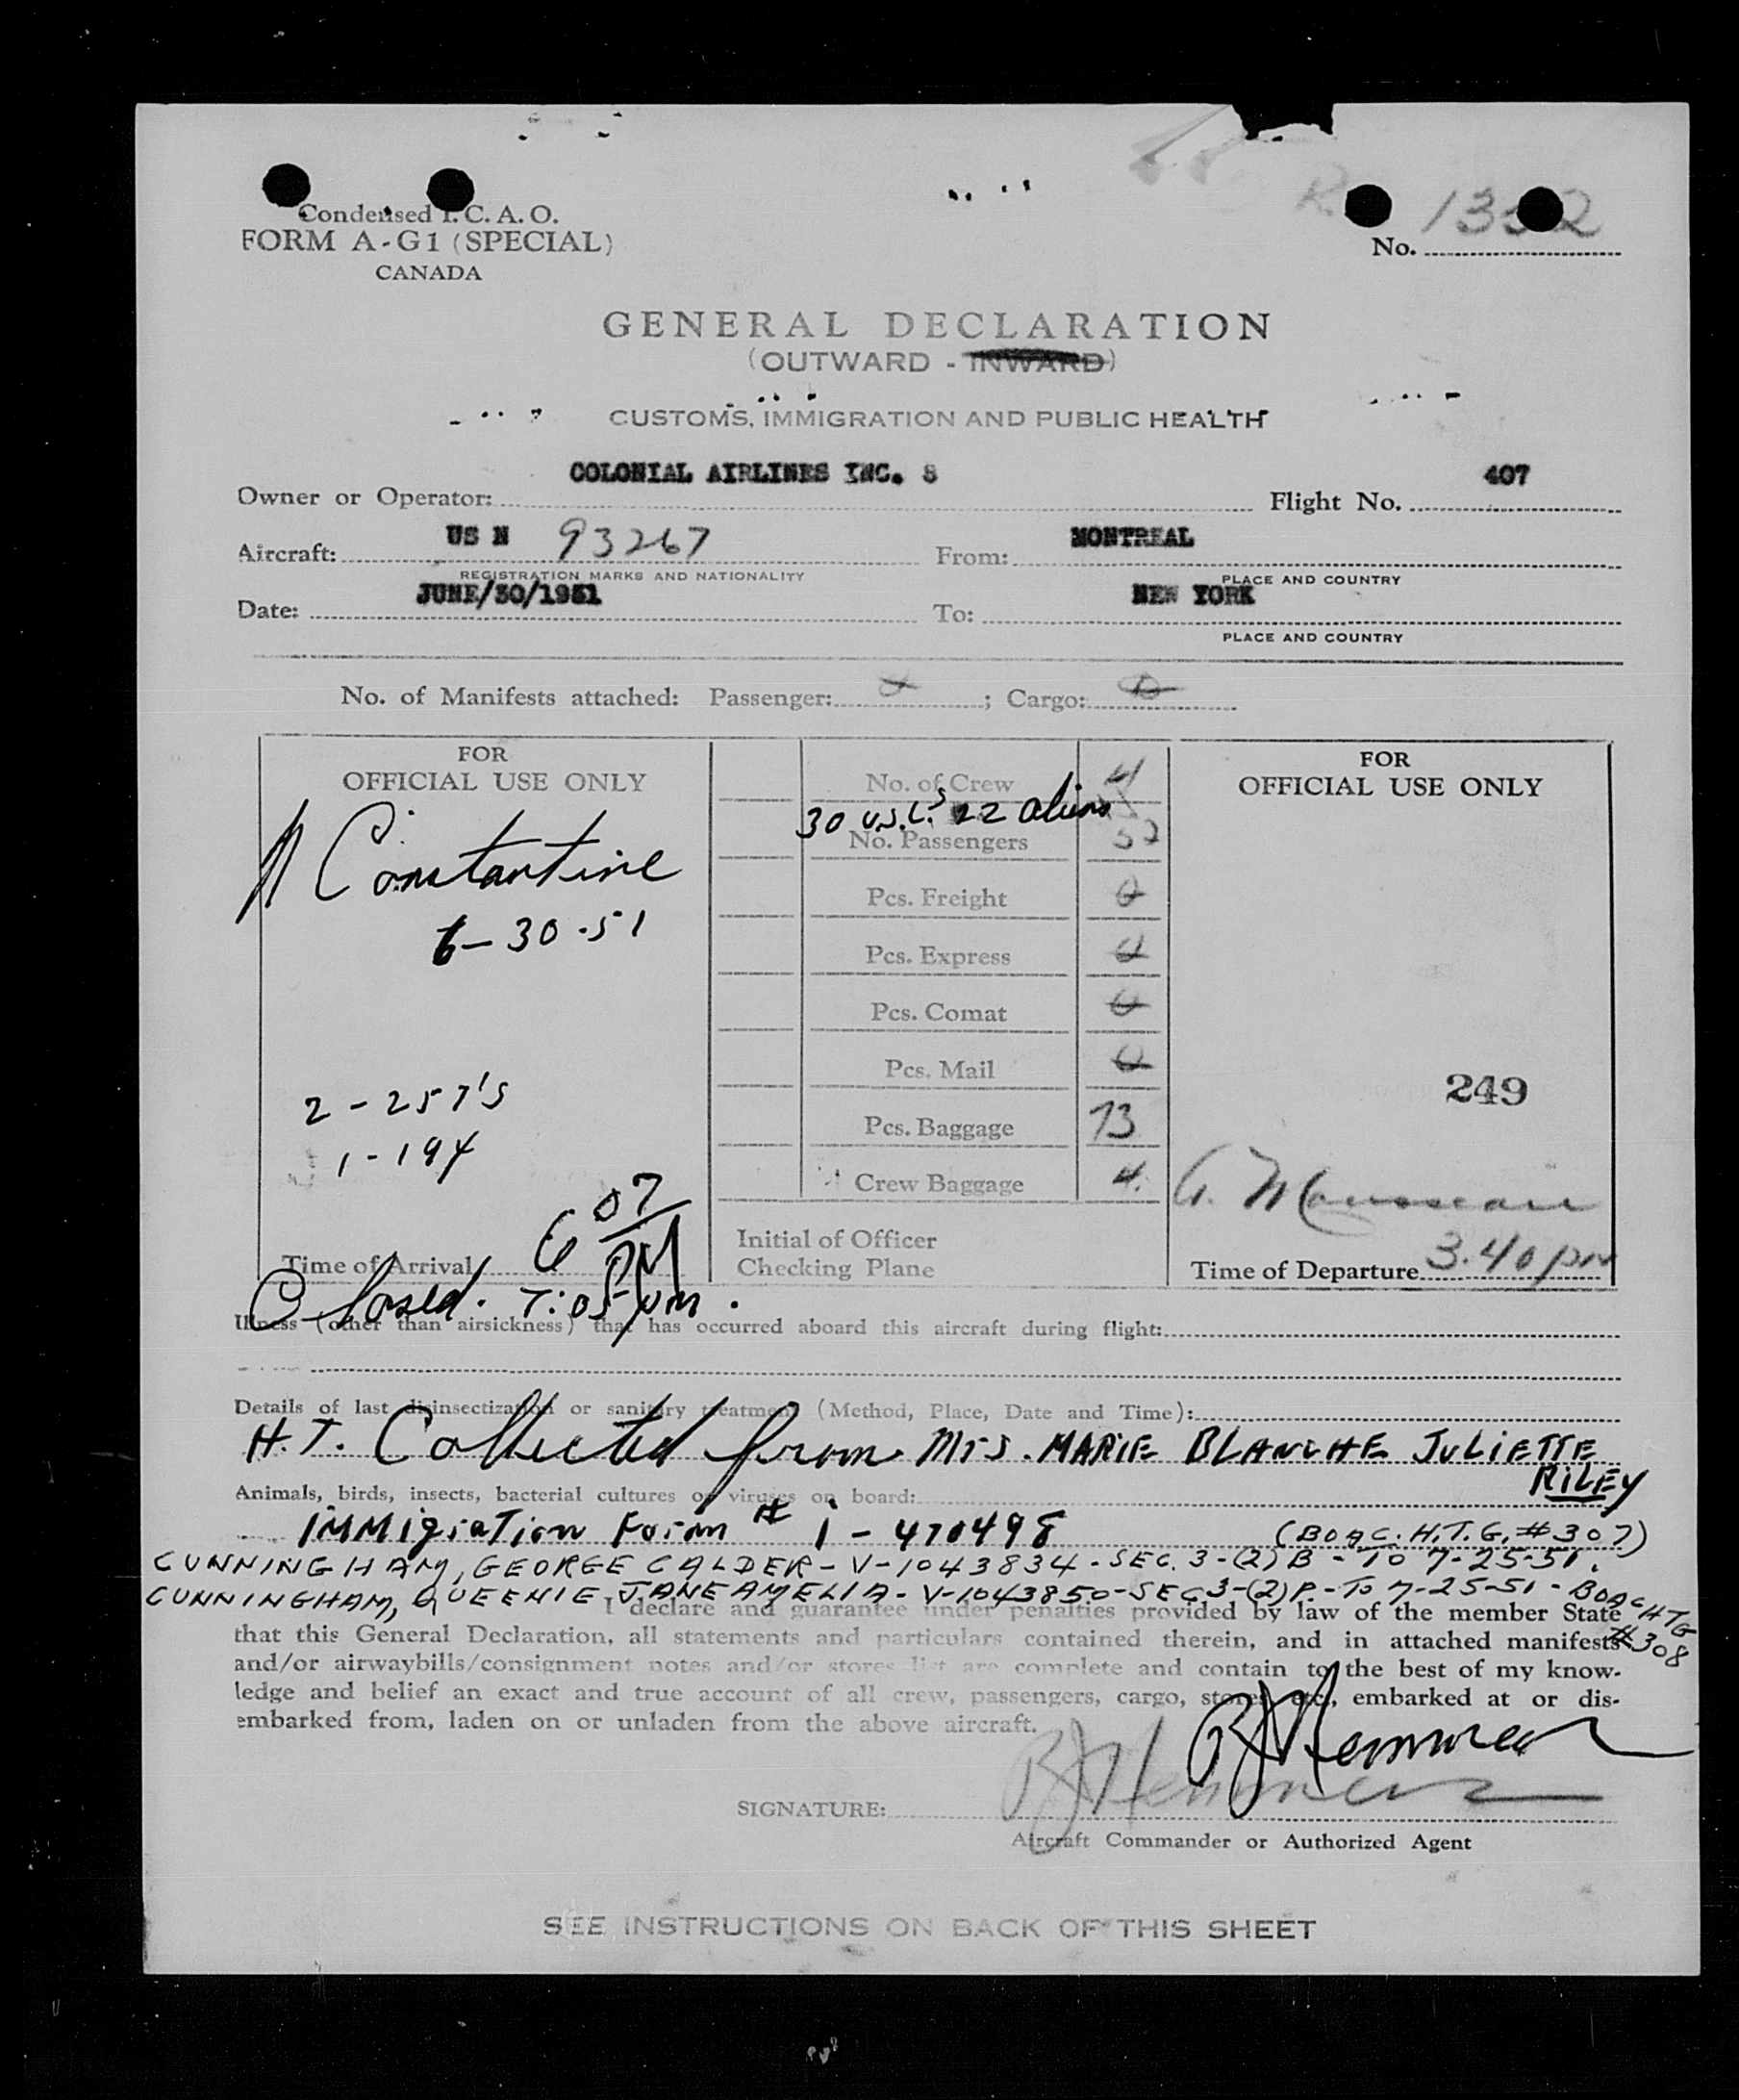 Condensed I. C. A. O.
FORM A-G1 (SPECIAL)
CANADA
No.
GENERAL DECLARATION
(OUTWARD - INWARD)
CUSTOMS, IMMIGRATION AND PUBLIC HEALTH
Owner or Operator: COLONIAL AIRLINES INC. 8 Flight No. 407
Aircraft: US N 93267 From: MONTREAL
REGISTRATION MARKS AND NATIONALITY PLACE AND COUNTRY
Date: JUNE/30/1951 To: NEW YORK
PLACE AND COUNTRY
No. of Manifests attached: Passenger: ; Cargo:
FOR
OFFICIAL USE ONLY
Constantine
6-30-51
2-257's
1-194
Time of Arrival 6 07 PM
Closed. 7:05 pm.
No. of Crew 4
30 U.S.C.'s 22 aliens
No. Passengers 52
Pcs. Freight 0
Pcs. Express 0
Pcs. Comat 0
Pcs. Mail 0
Pcs. Baggage 73
Crew Baggage 4
Initial of Officer
Checking Plane
FOR
OFFICIAL USE ONLY
249
Time of Departure 3.40 pm
Illness (other than airsickness) that has occurred aboard this aircraft during flight:
Details of last disinsectization or sanitary treatment (Method, Place, Date and Time):
H.T. Collected from Mrs. MARIE BLANCHE JULIETTE
RILEY
Animals, birds, insects, bacterial cultures or viruses on board:
IMMIGRATION FORM # I-470498 (BOAC. H.T.G. #307)
CUNNINGHAM, GEORGE CALDER - V-1043834 - SEC. 3-(2) B - TO 7-25-51.
CUNNINGHAM, QUEENIE JANE AMELIA - V-1043850 - SEC 3-(2) P. - TO 7-25-51 - BOAC HTG
#308
I declare and guarantee under penalties provided by law of the member State
that this General Declaration, all statements and particulars contained therein, and in attached manifests
and/or airwaybills/consignment notes and/or stores list are complete and contain to the best of my know-
ledge and belief an exact and true account of all crew, passengers, cargo, stores, etc., embarked at or dis-
embarked from, laden on or unladen from the above aircraft.
SIGNATURE:
Aircraft Commander or Authorized Agent
SEE INSTRUCTIONS ON BACK OF THIS SHEET